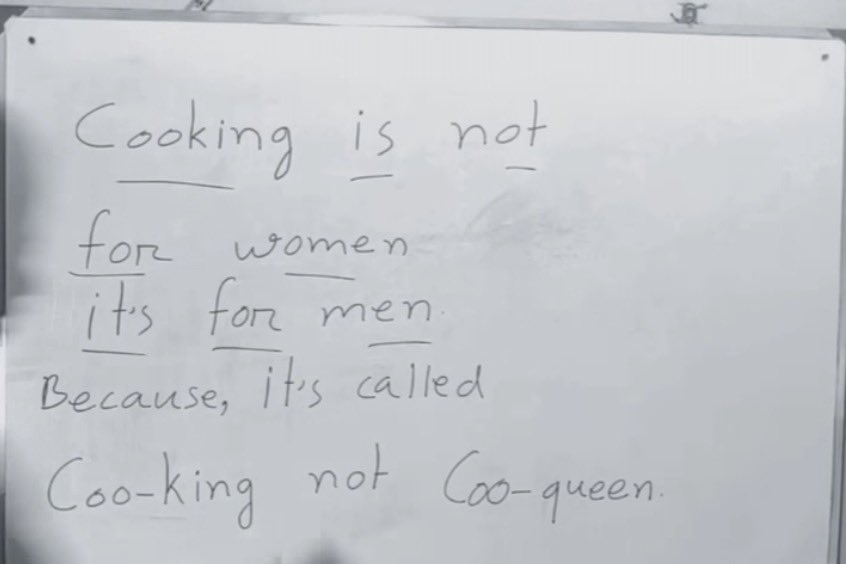 Cooking is not
for women
it's for men.
Because, it's called
Coo-king not Coo-queen.